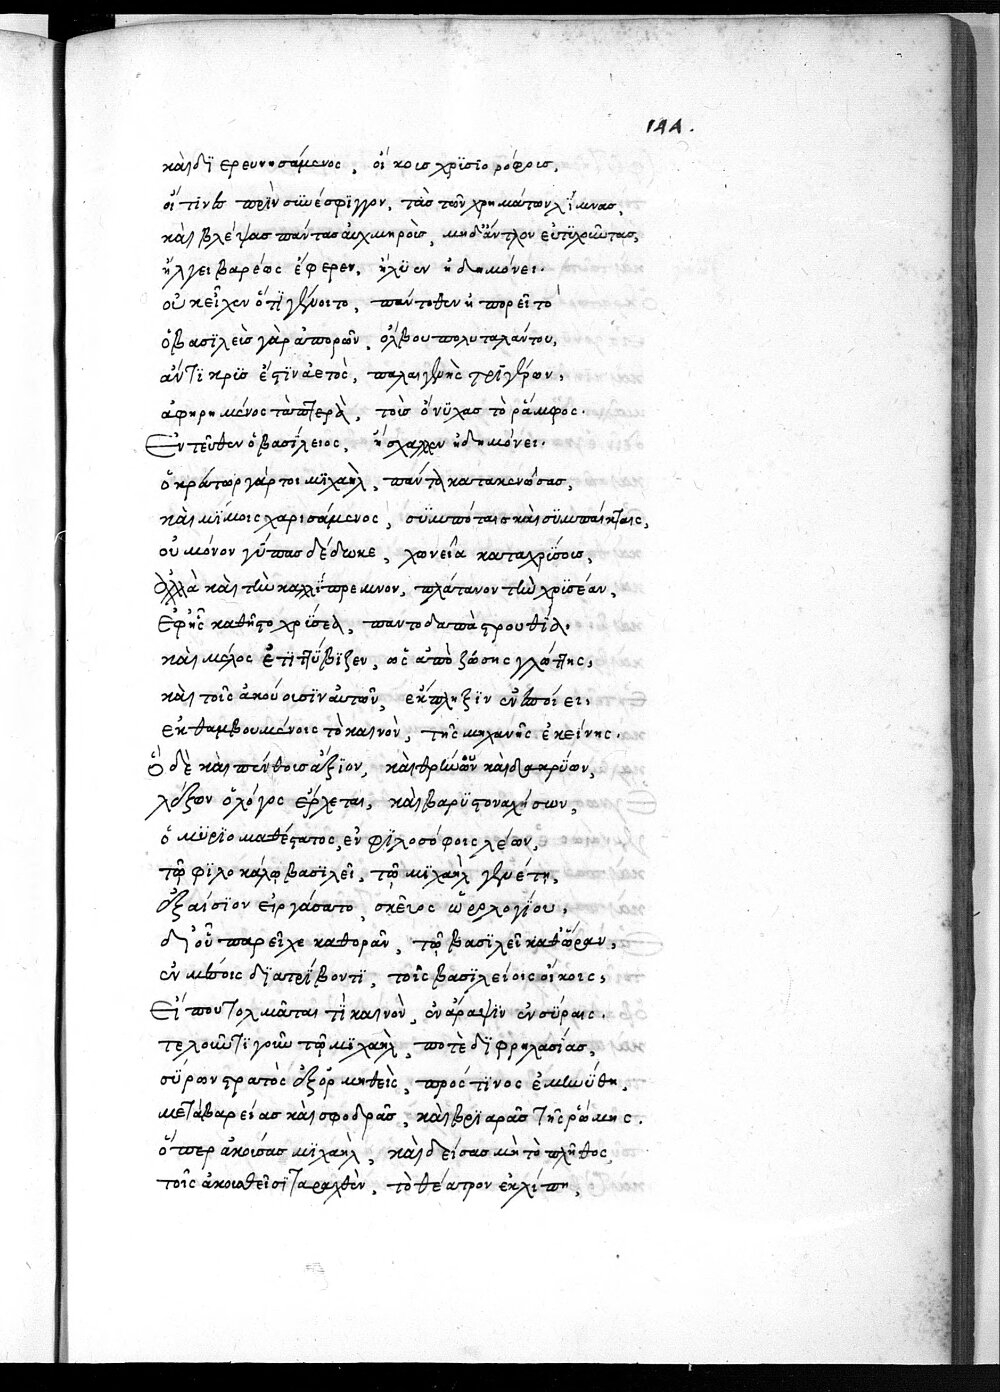 ΙΛΛ.
καὶ διερευνησάμενος, οἴκους χρυσοορόφους,
οἵτινες πρὶν συνέσφιγγον, τὰς τῶν χρημάτων λίμνας,
καὶ βλέψας πάντας αὐχμηροὺς, μηδ' ἄντλον εὐτυχοῦντας,
ἤλγει βαρέως ἔφερεν, ἤχυεν ἠδημόνει.
οὐκ εἶχεν ὅ τι γένοιτο, πάντοθεν ἠπορεῖτο
ὁ βασιλεὺς γὰρ ἀπορῶν, ὄλβου πολυταλάντου,
ἄντικρυς ἔστιν ἀετὸς, παλαιγενὴς τριγέρων,
ἀφῃρημένος τὰ πτερὰ, τοὺς ὄνυχας τὸ ῥάμφος.
Ἐντεῦθεν ὁ βασίλειος, ἤσχαλλεν ἠδημόνει.
ὁ κράτωρ γάρ τοι μιχαὴλ, πάντα κατακενώσας,
καὶ μίμοις χαρισάμενος, συμπόταις καὶ συμπαίκταις,
οὐ μόνον γύπας δέδωκε, χωνείᾳ καταχρύσους,
Ἀλλὰ καὶ τὴν καλλίπρεμνον, πλάτανον τὴν χρυσέαν,
ἐφ' ἧς καθῆστο χρύσεα, παντοδαπὰ στρουθία.
καὶ μέλος ἐτιττύβιζεν, ὡς ἀπὸ ζώσης γλώττης,
καὶ τοῖς ἀκούουσιν αὐτῶν, ἔκπληξιν ἐνεποίει,
ἐκθαμβουμένοις τὸ καινὸν, τῆς μηχανῆς ἐκείνης.
Ὃ δὲ καὶ πένθους ἄξιον, καὶ θρήνων καὶ δακρύων,
λέξων ὁ λόγος ἔρχεται, καὶ βαρυστοναχήσων,
ὁ μυριομαθέστατος, ἐν φιλοσόφοις λέων,
τῷ φιλοκάλῳ βασιλεῖ, τῷ μιχαὴλ γενέτῃ,
ἐξαίσιον εἰργάσατο, σκεῦος ὡρολογίου,
δι' οὗ παρεῖχε καθορᾶν, τῷ βασιλεῖ καθ' ὥραν,
ἐν μέσοις διατρίβοντι, τοῖς βασιλείοις οἴκοις,
Εἴ που τολμᾶται τὶ καινὸν, ἐν ἄραψιν ἐν σύραις.
τελοῦντι γοῦν τῷ μιχαὴλ, ποτὲ διφρηλασίας,
σύρων στρατὸς ἐξορμηθεὶς, πρός τινος ἐμηνύθη,
μετὰ βαρείας καὶ σφοδρᾶς, καὶ βριαρᾶς τῆς ῥώμης.
ὅπερ ἀκούσας μιχαὴλ, καὶ δείσας μὴ τὸ πλῆθος,
τοῖς ἀκουσθεῖσι ταραχθὲν, τὸ θέατρον ἐκλίπῃ,